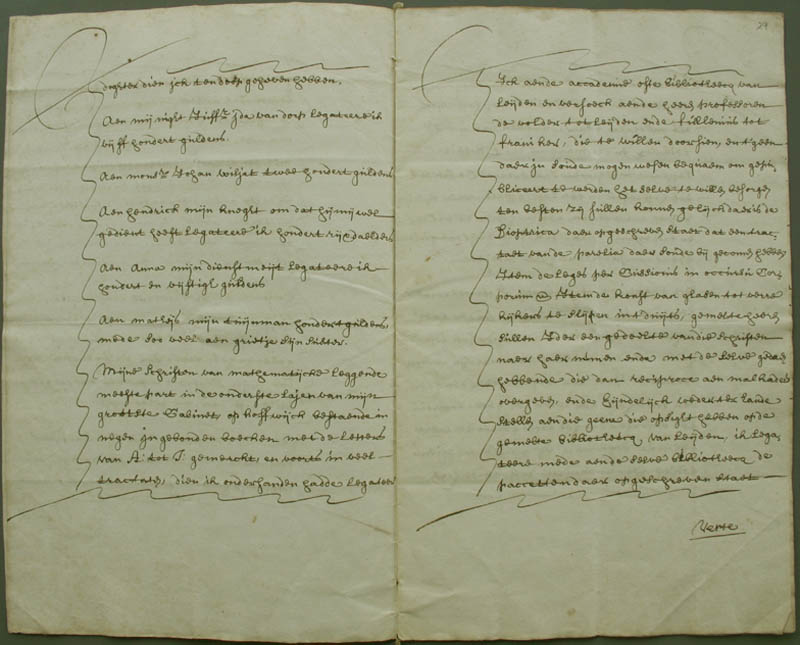 dochter dien ick ten doop geheven hebben.
Aen mijn nigt Jiffr. Ida van dorp legateere ik
vijff hondert guldens.
Aen monsr. Johan wiljet twee hondert guldens
Aen hendrick mijn knegt om dat hij mij wel
gedient heeft legateere ik hondert rijxdaelders
Aen Anna mijn dienstmeijt legateere ik
hondert en vijftigh guldens
Aen mathijs mijn tuijnman hondert guldens,
mede soo veel aen grietje sijn suster.
Mijne schriften van mathematijcke leggende
meeste part in de onderste lajen van mijn
grootste Cabinet, op hoffwijck bestaende in
negen ingebonden boecken met de letters
van A: tot I: gemerckt, en voorts in veel
tractaten, dien ik onderhanden hadde legateer
29
Ick aende accademie ofte bibliotheecq van
Leijden en versoeck aende heeren professoren
de volder tot leijden ende fullenius tot
franiker, die te willen doorsien, en t geen
daer in soude mogen wesen bequaem om gepu
bliceert te werden het selve te willen besorgen
ten besten zij sullen konnen gelijck daer is de
Dioptrica daer op geschreven staet dat een trac,
taet van de parelia daer soude bij gecomen hebben
Item de leges per Suedicius in occursu Cor,
porum Item de konst van glasen tot verre
kijkers te slijpen in t duijts, gemelte heeren
sullen Ider een gedeelte van die schriften
naer haer nemen ende met de selve gedaen
hebbende die dan reciproce aen malkander
overgeven, ende Eijndelijck wederter hande
stellen aen die geene die opsigt hebben op de
gemelte bibliotheecq van Leijden, ik lega,
teere mede aende selve bibliotheecq de
paccetten daer op geschreven staet
Verte